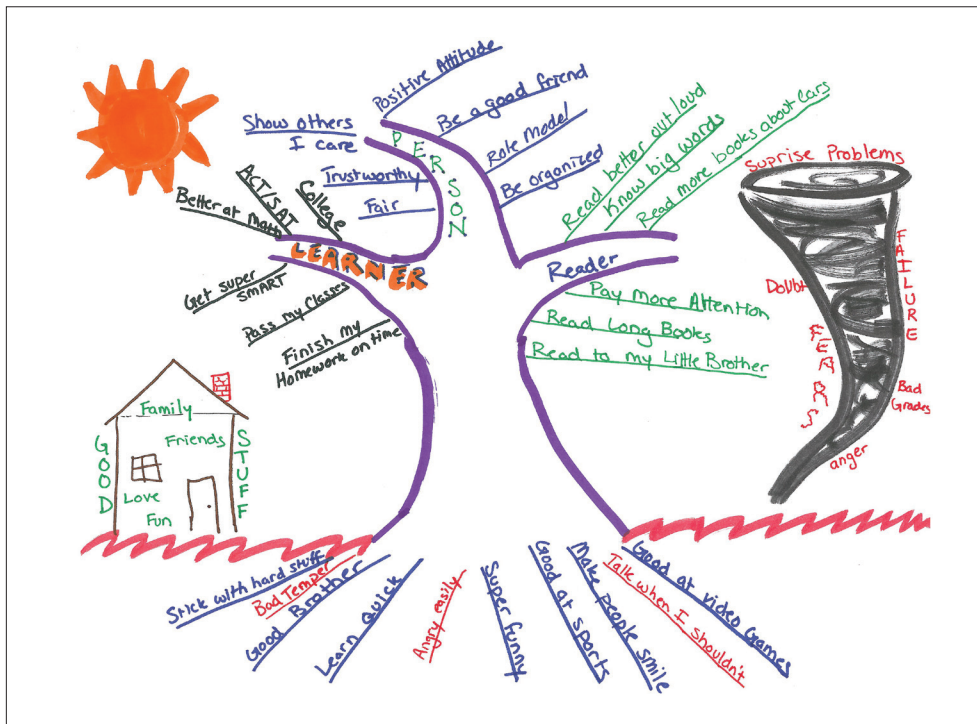 Positive Attitude
Be a good friend
Role Model
Be organized
Show others
I care
Trustworthy
Fair
PERSON
ACT/SAT
College
Better at Math
LEARNER
Get super
SMART
Pass my classes
Finish my
Homework on time
Read better out loud
Know big words
Read more books about cars
Reader
Pay more Attention
Read Long Books
Read to my Little Brother
Suprise Problems
Doubt
FAILURE
FEARS
Bad
Grades
anger
Family
Friends
Love
Fun
GOOD
STUFF
Stick with hard stuff
Bad Temper
Good Brother
Learn Quick
Angry easily
Super funny
Good at sports
Make people smile
Talk when I shouldn't
Good at video Games